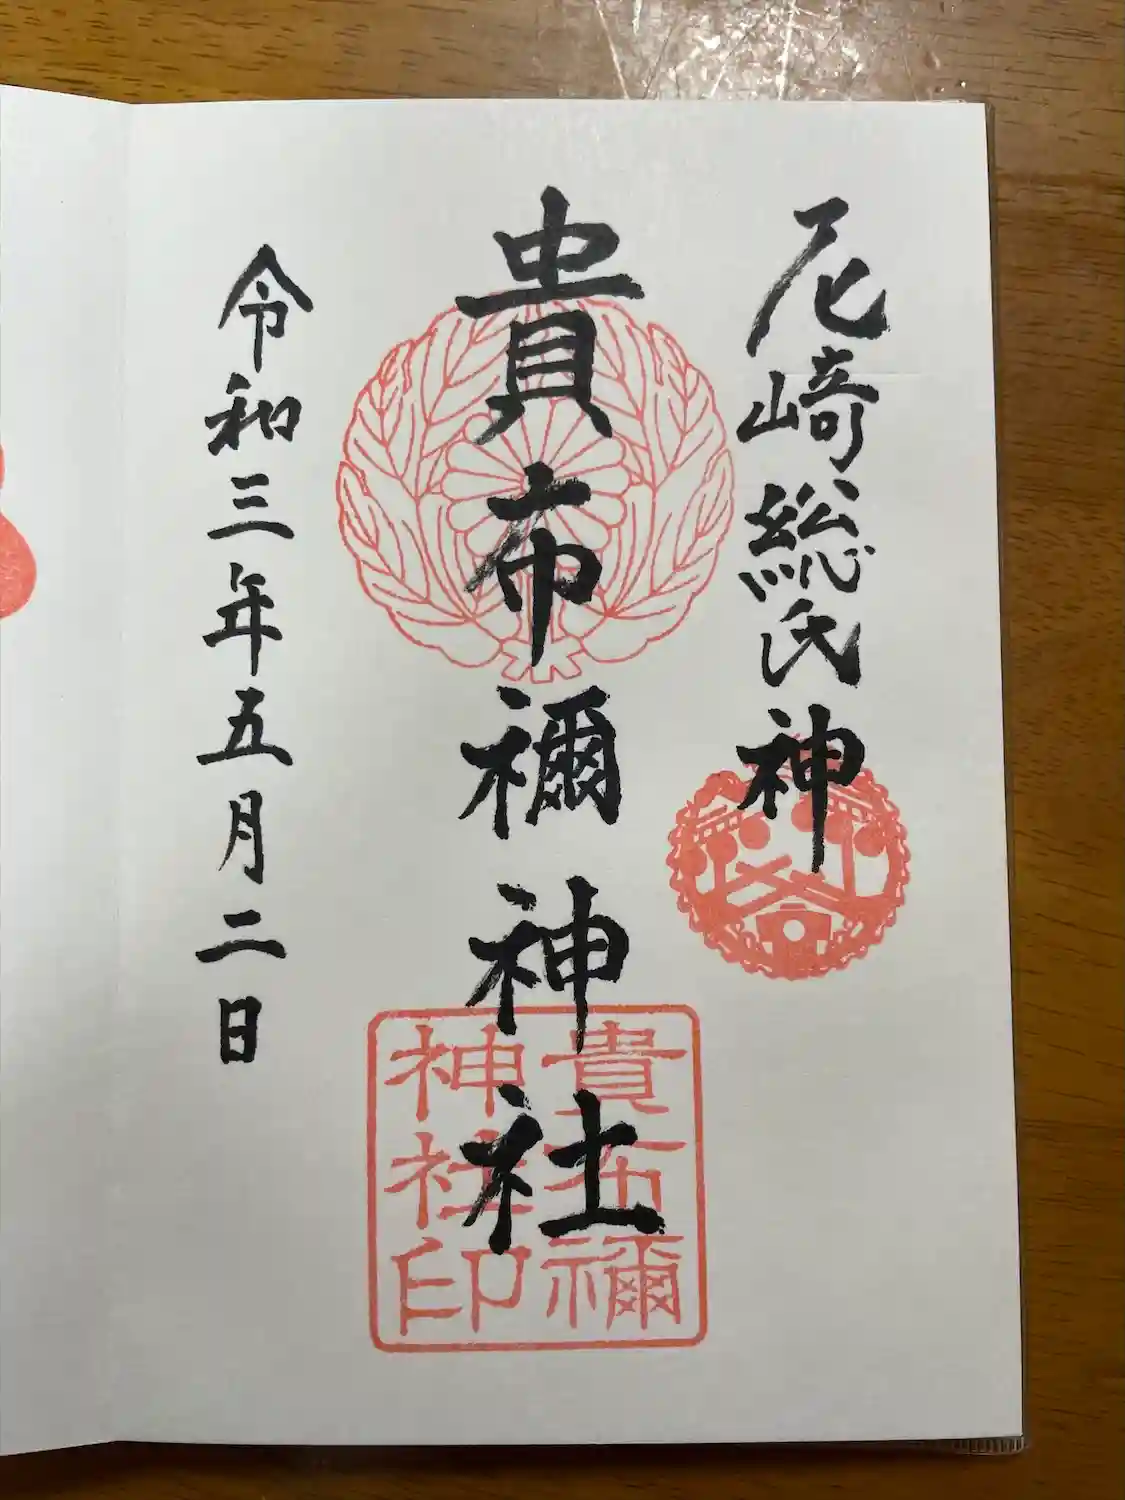 尼崎総氏神
貴布禰神社
貴布禰
神社印
令和三年五月二日